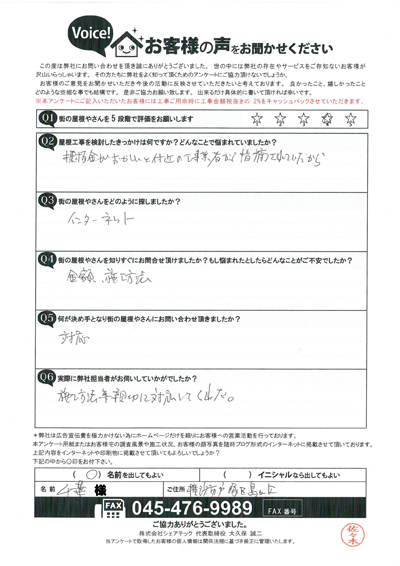 Voice!
お客様の声をお聞かせください
この度は弊社にお問い合わせを頂き誠にありがとうございました。世の中には弊社の存在やサービスをご存知ないお客様が
沢山いらっしゃいます。その方たちに弊社をよく知って頂くためのアンケートにご協力頂けないでしょうか。
お客様のご意見をお聞かせいただき今後の活動に反映させていただきたいと考えております。良かったこと、嬉しかったこと
どのような些細な事でも結構です。是非ご協力お願い致します。出来るだけ具体的に書いて頂ければ幸いです。
※本アンケートにご記入いただいたお客様には工事ご用命時に工事金額税抜きの 2%をキャッシュバックさせていただきます。
Q1 街の屋根やさんを5段階で評価をお願いします ☆ ☆ ☆ ☆ ☆
Q2 屋根工事を検討したきっかけは何ですか?どんなことで悩まれていましたか?
棟板金がおかしいと付近の工事業者から指摘されていたから
Q3 街の屋根やさんをどのように探しましたか?
インターネット
Q4 街の屋根やさんを知りすぐにお問合せ頂けましたか?もし悩まれたとしたらどんなことがご不安でしたか?
金額、施工方法
Q5 何が決め手となり街の屋根やさんにお問い合わせ頂きましたか?
対応
Q6 実際に弊社担当者がお伺いしていかがでしたか?
施工方法等親切に対応してくれた。
*弊社は広告宣伝費を極力かけない為にホームページだけを頼りにお客様への営業活動を行っております。
本アンケート用紙またはお客様宅の調査風景や施工状況、お客様の顔写真を随時ブログ形式のインターネットに掲載させて頂いております。
上記内容をインターネットや印刷物に掲載させて頂いてもよろしいでしょうか?
下記の中から〇印をお付下さい。
( 〇 ) 名前を出してもよい ( ) イニシャルなら出してもよい
名前 千葉 様 ご住所 横浜市戸塚区
FAX 045-476-9989 FAX 番号
ご協力ありがとうございました。
株式会社シェアテック 代表取締役 大久保 誠二
当アンケートで取得したお客様の個人情報は関係法規に基づき厳正に管理いたします。
佐々木